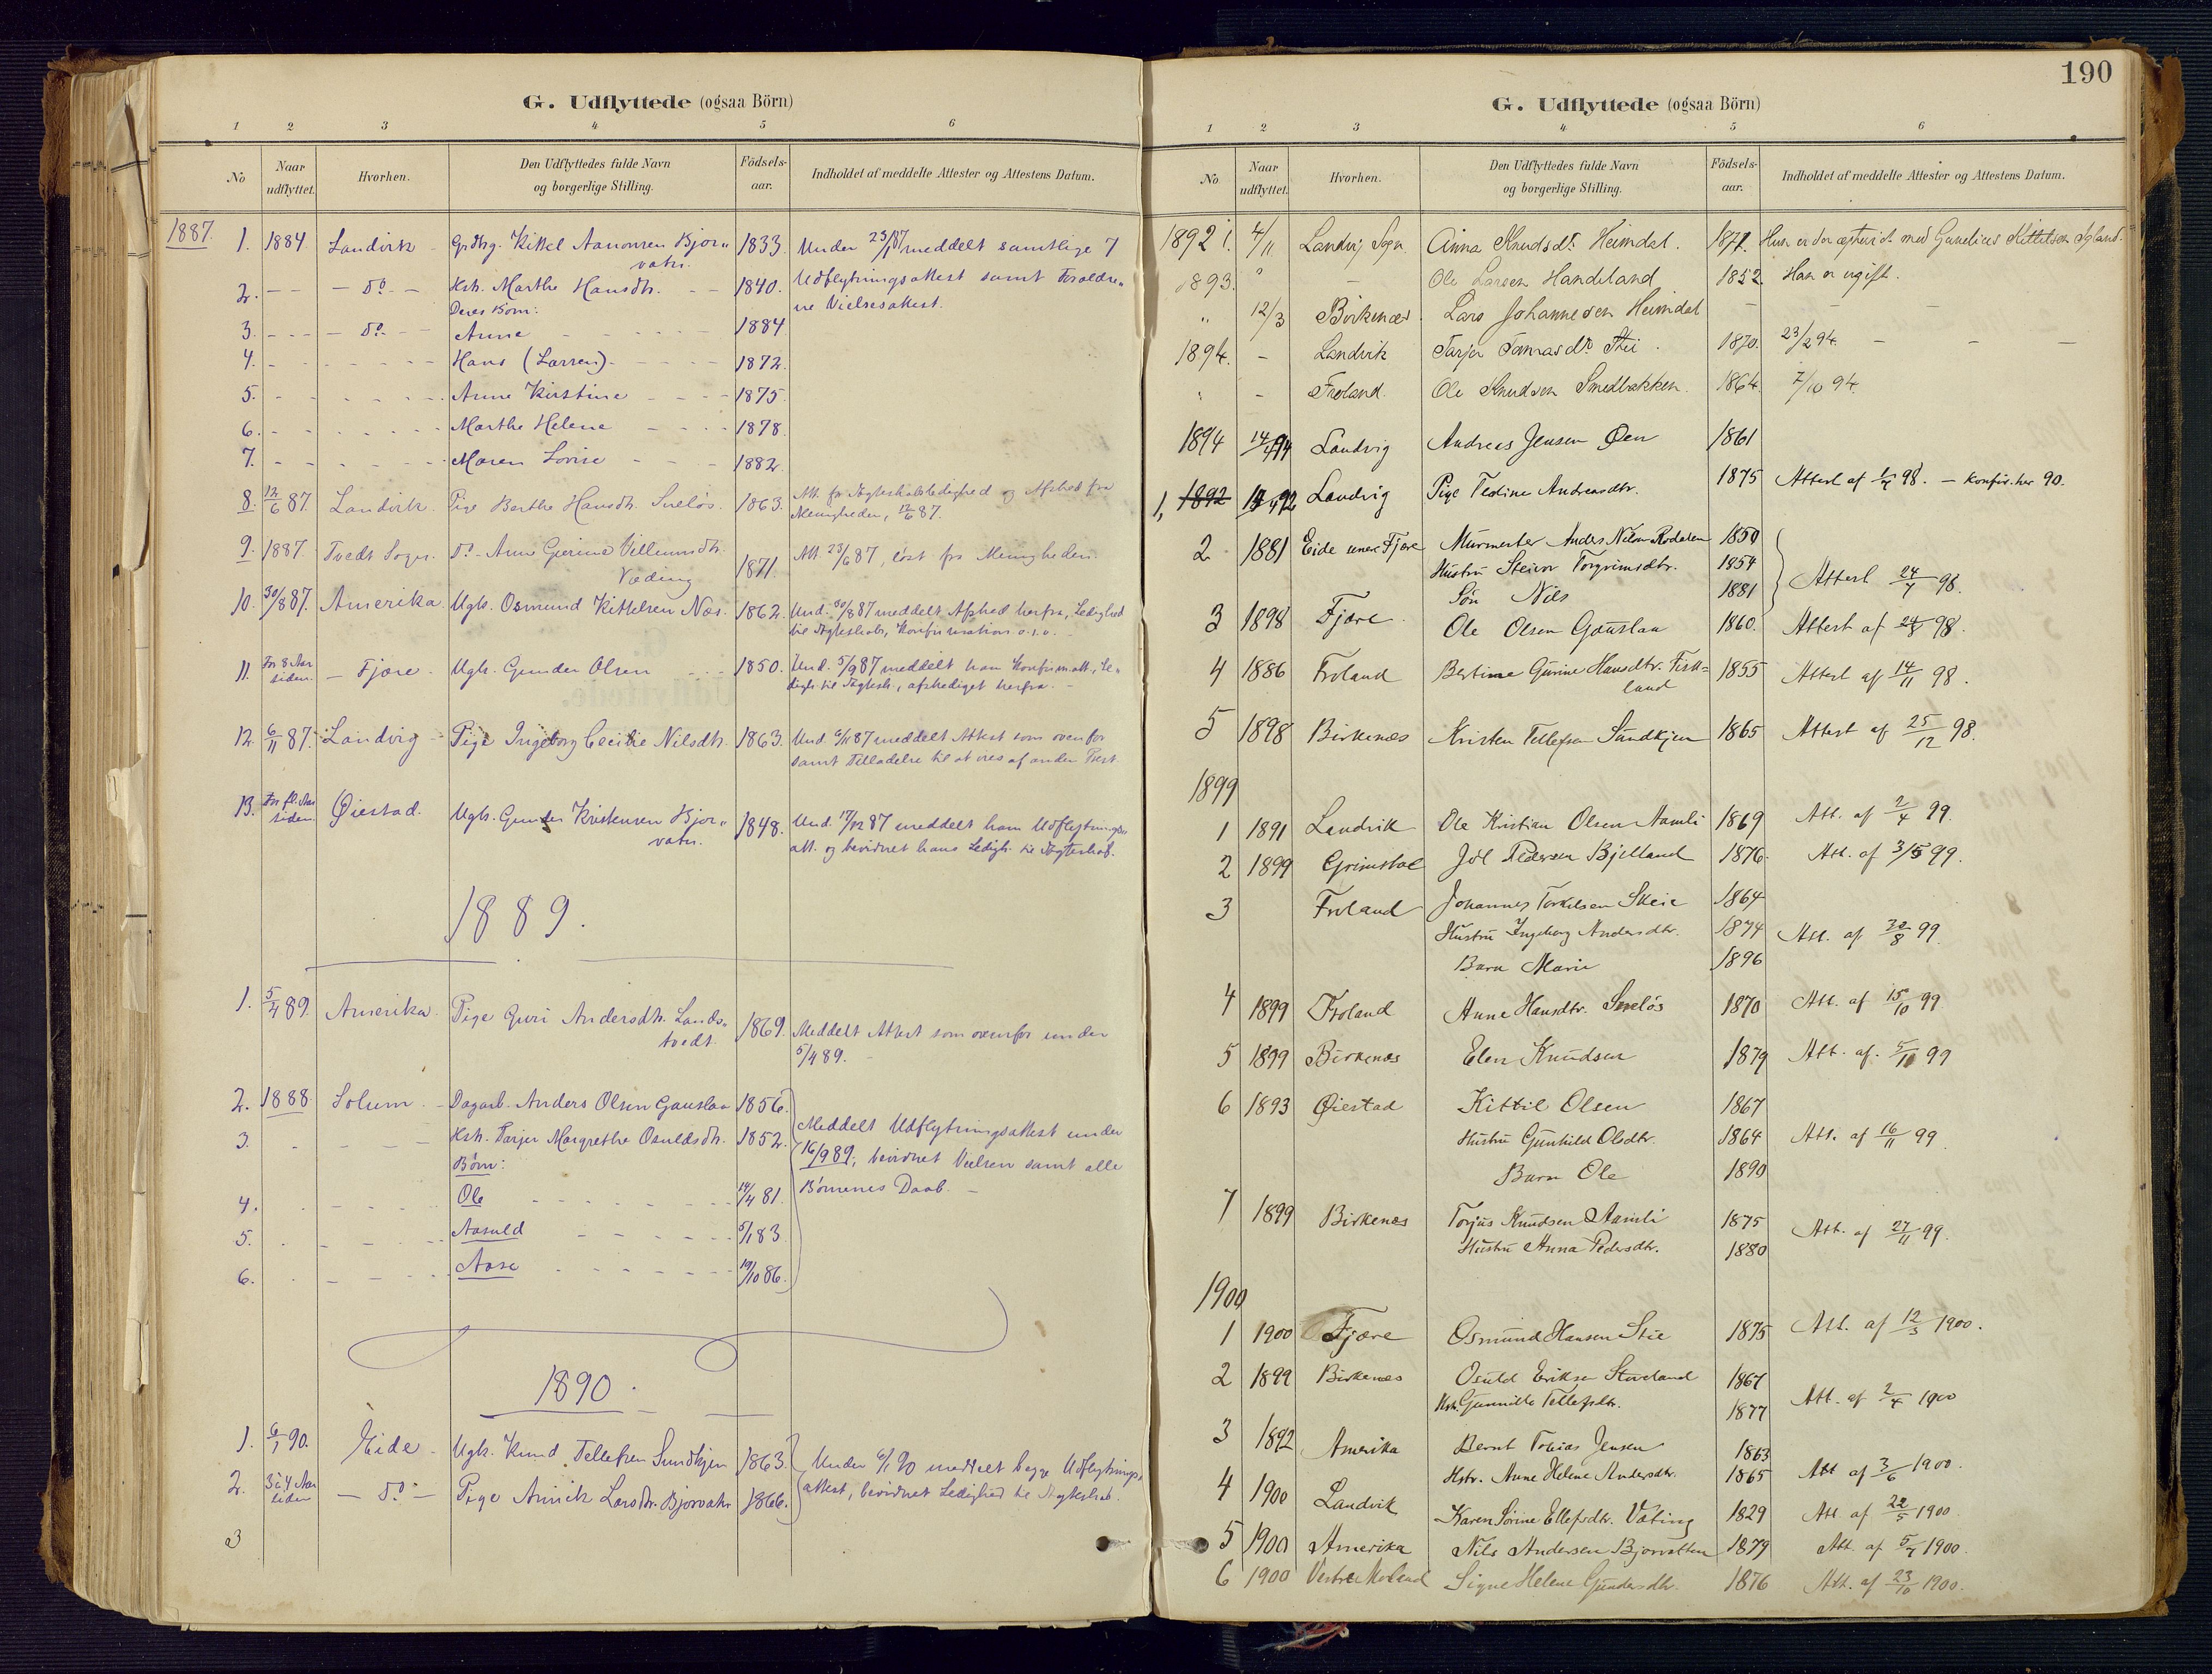 G. Udflyttede (ogsaa Börn)
1 2 3 4 5 6
No
Naar udflyttet.
Hvorhen.
Den Udflyttedes fulde Navn og borgerlige Stilling.
Födsels-aar.
Indholdet af meddelte Attester og Attestens Datum.
1887. 1. 1884. Landvik Kittel Aanonsen Kjør„ 1833. Under meddelt samtlige 7
vatn.
2. — — — Do — Hst. Marthe Hansdtr. 1840. Udflytningsattest samt Foraldre„
Deres Børn: ne Vielsesattest.
3. - - - - Do - Anne 1884.
4. Hans (Larsen) 1872.
5. Anne Kirstine 1875.
6. Marthe Helene 1878.
7. Maren Lovise 1882.
8. 12/6 87. Landvik. Pige Berthe Hansdtr. Sneløs. 1863. Att. for Ægteskabsledighed og Afsked fra
Menigheden, 12/6 87.
9. 1887. Tvedt Sogn. Do - Anne Gurine Villumsdtr. 1871. Att. 23/6 87, løst fra Menigheden.
Væding
10. 30/8 87. Amerika. Ugk. Osmund Kittelsen Næs. 1862. Und. 30/8 87 meddelt Afsked herfra, Ledighed
til Ægteskab, Konfirmation o.s.v.
11. For 8 Aar siden. — Fjære. Ugk. Gunder Olsen 1850. Und. 5/9 87 meddelt ham Konfirm.att., Le„
digh. til Ægtesk., afskediget herfra. —
12. 6/11 87. Landvig Pige Ingeborg Cecilie Nilsdtr. 1863. Und. 6/11 87 meddelt Attest som ovenfor
samt Tilladelse til at vies af anden Præst.
13. For fl. Aar siden. Øiestad. Ugk. Gunder Kristensen Kjør„ 1848. Und. 17/12 87 meddelt ham Udflytnings„
vatn. att. og bevidnet hans Ledigh. til Ægteskab.
1889.
1. 5/4 89. Amerika. Pige Guri Andersdtr. Lands„ 1869. Meddelt Attest som ovenfor under
tvedt. 5/4 89.
2. 1888. Solum Dagarb. Anders Olsen Gauslaa 1856. Meddelt Udflytningsattest under
3. Hst. Tarjer Margrethe Osuldsdtr. 1852. 16/9 89, bevidnet Vielsen samt alle
Børn: Børnenes Daab. —
4. Ole 14/4 81.
5. Aasuld 5/1 83.
6. Aase 19/10 86.
1890.
1. 6/1 90. Eide Ugk. Knud Tellefsen Sundkjen 1863. Under 6/1 90 meddelt begge Udflytnings„
2. 3 à 4 Aar siden — Do — Pige Annick Larsdtr. Bjorvatn 1866. attest, bevidnet Ledighed til Ægteskab.
3
190
G. Udflyttede (ogsaa Börn)
1 2 3 4 5 6
No
Naar udflyttet.
Hvorhen.
Den Udflyttedes fulde Navn og borgerlige Stilling.
Födsels-aar.
Indholdet af meddelte Attester og Attestens Datum.
1892 1. 4/11 Landvig Sogn. Anna Knudsdtr Heimdal. 1871. Hun er der ægteviet med Kittelsen Igland.
1893. Ole Larsen Handeland 1852. Han er ugift.
„ 12/3 Birkenæs Lars Johannesen Heimdal — — —
1894. — Landvik Tarjer Tomasdtr Stie. 1870. 23/2 94. — — —
„ — Froland. Ole Knudsen Smedbakken. 1864. 7/10 94.
1894 14/4 94 Landvig Andreas Jensen Øen 1861
1, 1892 92 Landvig Pige Tedine Andreasdtr. 1875 Attest af 98. — Konfir. her 90.
2 1881 Eide Fjære Murmester Anders Nilsen Rodalen 1850
Hustru Steivor Torgrimsdtr. 1854
Søn Nils 1881 Attest 24/7 98.
3 1898 Fjære Ole Olsen Gauslaa 1860. Attest af 24/8 98.
4 1886 Froland Bertine Gurine Hansdtr. Fisk= 1855 Attest af 14/11 98.
land
5 1898 Birkenæs Kristen Tellefsen Sundkjen 1865 Attest af 25/12 98.
1899
1 1891 Landvik Ole Kristian Olsen Aamli 1869 Att. af 2/4 99.
2 1899 Grimstad Joel Pedersen Bjelland 1876. Att. af 3/5 99.
3 Froland Johannes Torkelsen Skeie 1864
Hustru Ingeborg Andersdtr. 1874 Att. af 22/8 99.
Barn Marie 1896
4 1899 Froland Anne Hansdtr. Sneløs 1870 Att. af 15/10 99.
5 1899 Birkenæs Elen Knudsen 1879 Att. af. 5/11 99
6 1893 Øiestad Kittil Olsen 1867
Hustru Gunhild Olsdtr. 1864 Att. af 16/11 99.
Barn Ole 1890
7 1899 Birkenes Torjus Knudsen Aamli 1875 Att. af 27/11 99.
Hustru Anna Pedersdtr. 1880
1900
1 1900 Fjære Osmund Hansen Stie 1875 Att. af 12/3 1900.
2 1899 Birkenæs Osuld Eriksen Stoveland 1867 Att. af 2/4 1900
Hst. Gunnilde Tellefsdtr. 1877
3 1892 Amerika Bernt Tobias Jensen 1863
Hstr. Anne Helene Andersdtr. 1865 Att af 3/6 1900.
4 1900 Landvik Karen Sørine Ellefsdtr. Væting 1829 Att af 22/5 1900.
5 1900 Amerika Nils Andersen Bjorvatten 1879 Att. af 5/7 1900.
6 1900 Vestre Moland Signe Helene Gundersdtr. 1876 Att. af 23/10 1900.